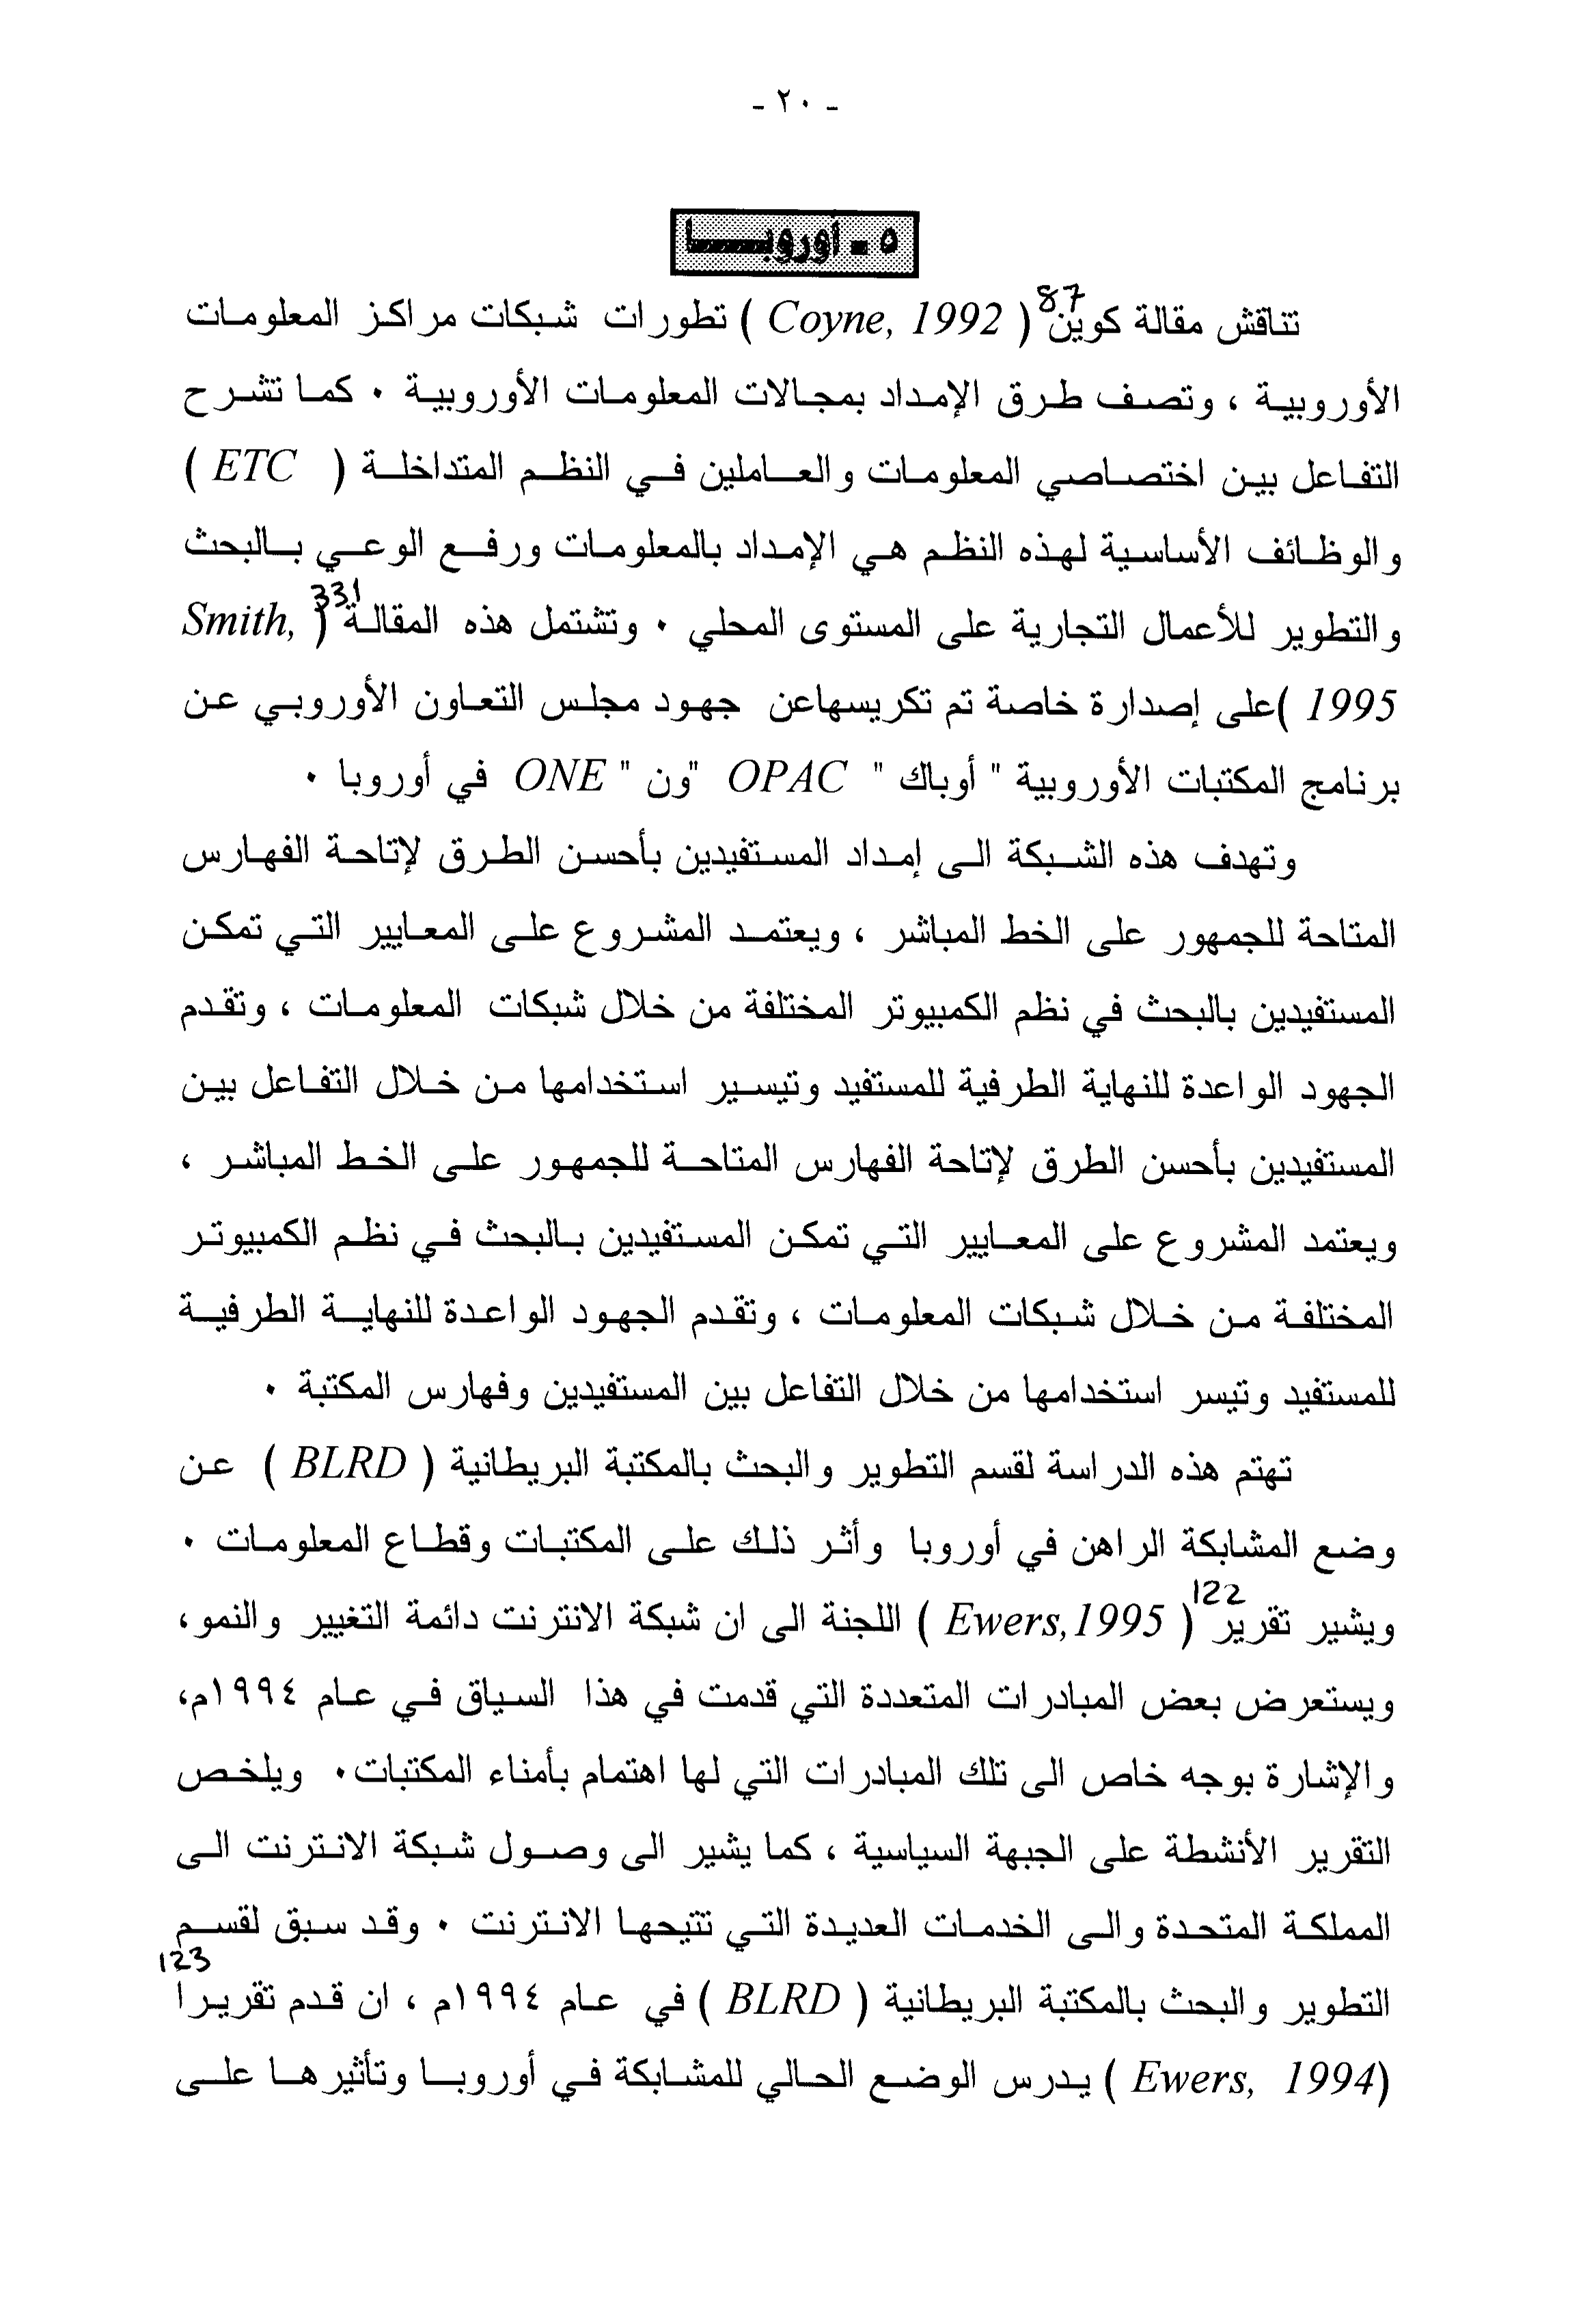 - ٢٠ -
٥ - أوروبــــا
تناقش مقالة كوين 87 ( Coyne, 1992 ) تطورات شبكات مراكز المعلومات
الأوروبية ، وتصف طرق الإمداد بمجالات المعلومات الأوروبية ٠ كما تشرح
التفاعل بين اختصاصي المعلومات والعاملين في النظم المتداخلة ( ETC )
والوظائف الأساسية لهذه النظم هي الإمداد بالمعلومات ورفع الوعي بالبحث
والتطوير للأعمال التجارية على المستوى المحلي ٠ وتشتمل هذه المقالة 331 ( Smith,
1995 )على إصدارة خاصة تم تكريسهاعن جهود مجلس التعاون الأوروبي عن
برنامج المكتبات الأوروبية " أوباك " OPAC "ون " ONE في أوروبا ٠
وتهدف هذه الشبكة الى إمداد المستفيدين بأحسن الطرق لإتاحة الفهارس
المتاحة للجمهور على الخط المباشر ، ويعتمد المشروع على المعايير التي تمكن
المستفيدين بالبحث في نظم الكمبيوتر المختلفة من خلال شبكات المعلومات ، وتقدم
الجهود الواعدة للنهاية الطرفية للمستفيد وتيسير استخدامها من خلال التفاعل بين
المستفيدين بأحسن الطرق لإتاحة الفهارس المتاحة للجمهور على الخط المباشر ،
ويعتمد المشروع على المعايير التي تمكن المستفيدين بالبحث في نظم الكمبيوتر
المختلفة من خلال شبكات المعلومات ، وتقدم الجهود الواعدة للنهاية الطرفية
للمستفيد وتيسر استخدامها من خلال التفاعل بين المستفيدين وفهارس المكتبة ٠
تهتم هذه الدراسة لقسم التطوير والبحث بالمكتبة البريطانية ( BLRD ) عن
وضع المشابكة الراهن في أوروبا وأثر ذلك على المكتبات وقطاع المعلومات ٠
ويشير تقرير 122 ( Ewers,1995 ) اللجنة الى ان شبكة الانترنت دائمة التغيير والنمو،
ويستعرض بعض المبادرات المتعددة التي قدمت في هذا السياق في عام ١٩٩٤م،
والإشارة بوجه خاص الى تلك المبادرات التي لها اهتمام بأمناء المكتبات٠ ويلخص
التقرير الأنشطة على الجبهة السياسية ، كما يشير الى وصول شبكة الانترنت الى
المملكة المتحدة والى الخدمات العديدة التي تتيحها الانترنت ٠ وقد سبق لقسم
التطوير والبحث بالمكتبة البريطانية ( BLRD ) في عام ١٩٩٤م ، ان قدم تقريرا 123
(Ewers, 1994 ) يدرس الوضع الحالي للمشابكة في أوروبا وتأثيرها على